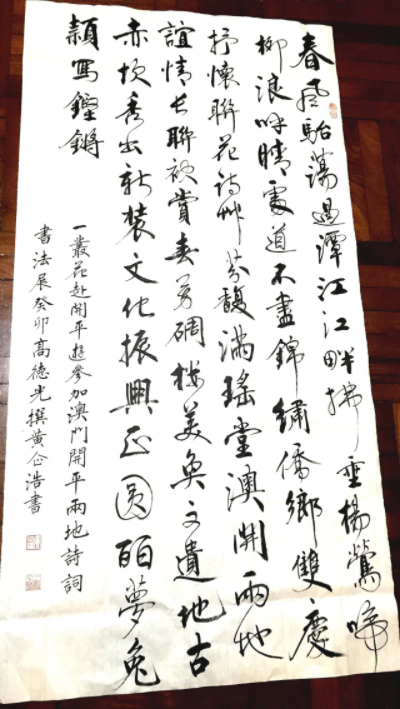 春風駘蕩過潭江江畔拂垂楊鶯啼
柳浪呼晴處道不盡錦繡僑鄉雙慶
抒懷聯花詩艸芬馥滿瑤堂澳開兩地
誼情長聯袂賞春芳碉樓美奐文遺地古
赤坎秀出新裝文化振興正圓夢兔
穎寫鏗鏘
一叢花赴開平遊參加澳門開平兩地詩詞
書法展癸卯高德光撰黃企浩書